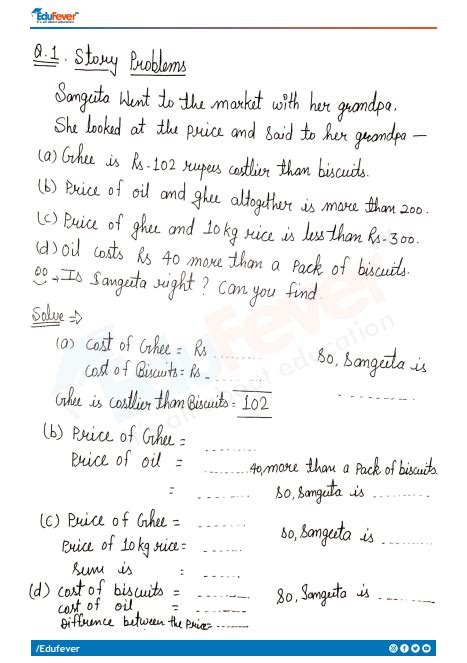 EduFever
it's all about education
Q.1. Story Problems
Sangeeta Went to the market with her grandpa.
She looked at the price and said to her grandpa —
(a) Ghee is Rs-102 rupees costlier than biscuits.
(b) Price of oil and ghee altogether is more than 200.
(c) Price of ghee and 10 kg rice is less than Rs-300.
(d) Oil costs Rs 40 more than a pack of biscuits.
→ Is Sangeeta right? Can you find.
Solve ⇒
(a) Cost of Ghee = Rs ........
Cost of Biscuits = Rs - ........
So, Sangeeta is
........
Ghee is costlier than Biscuits = 102
(b) Price of Ghee = ........
Price of oil = ........ 40, more than a Pack of biscuits.
= ........ So, Sangeeta is ........
(c) Price of Ghee = ........
So, Sangeeta is ........
Price of 10 kg rice = ........
Sum is = ........
(d) Cost of biscuits = ........ So, Sangeeta is ........
cost of oil = ........
Difference between the Price = ........
EduFever
all about education
/Edufever